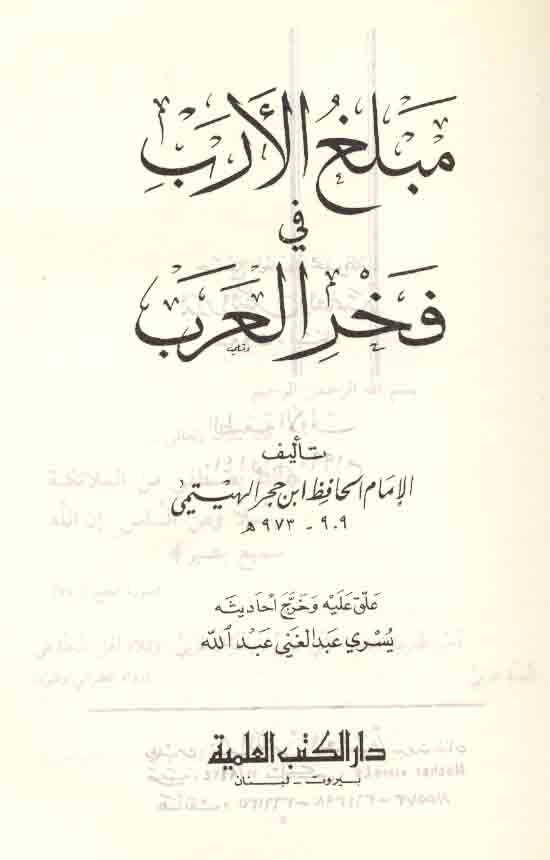 مَبلَغُ الأَرَبِ
في
فَخْرِ العَرَب
تأليف
الإمام الحافظ ابن حجر الهيتمي
٩٠٩ - ٩٧٣ هـ
علّق عليه وخرّج أحاديثه
يُسري عبد الغني عبد الله
دار الكتب العلمية
بيروت - لبنان